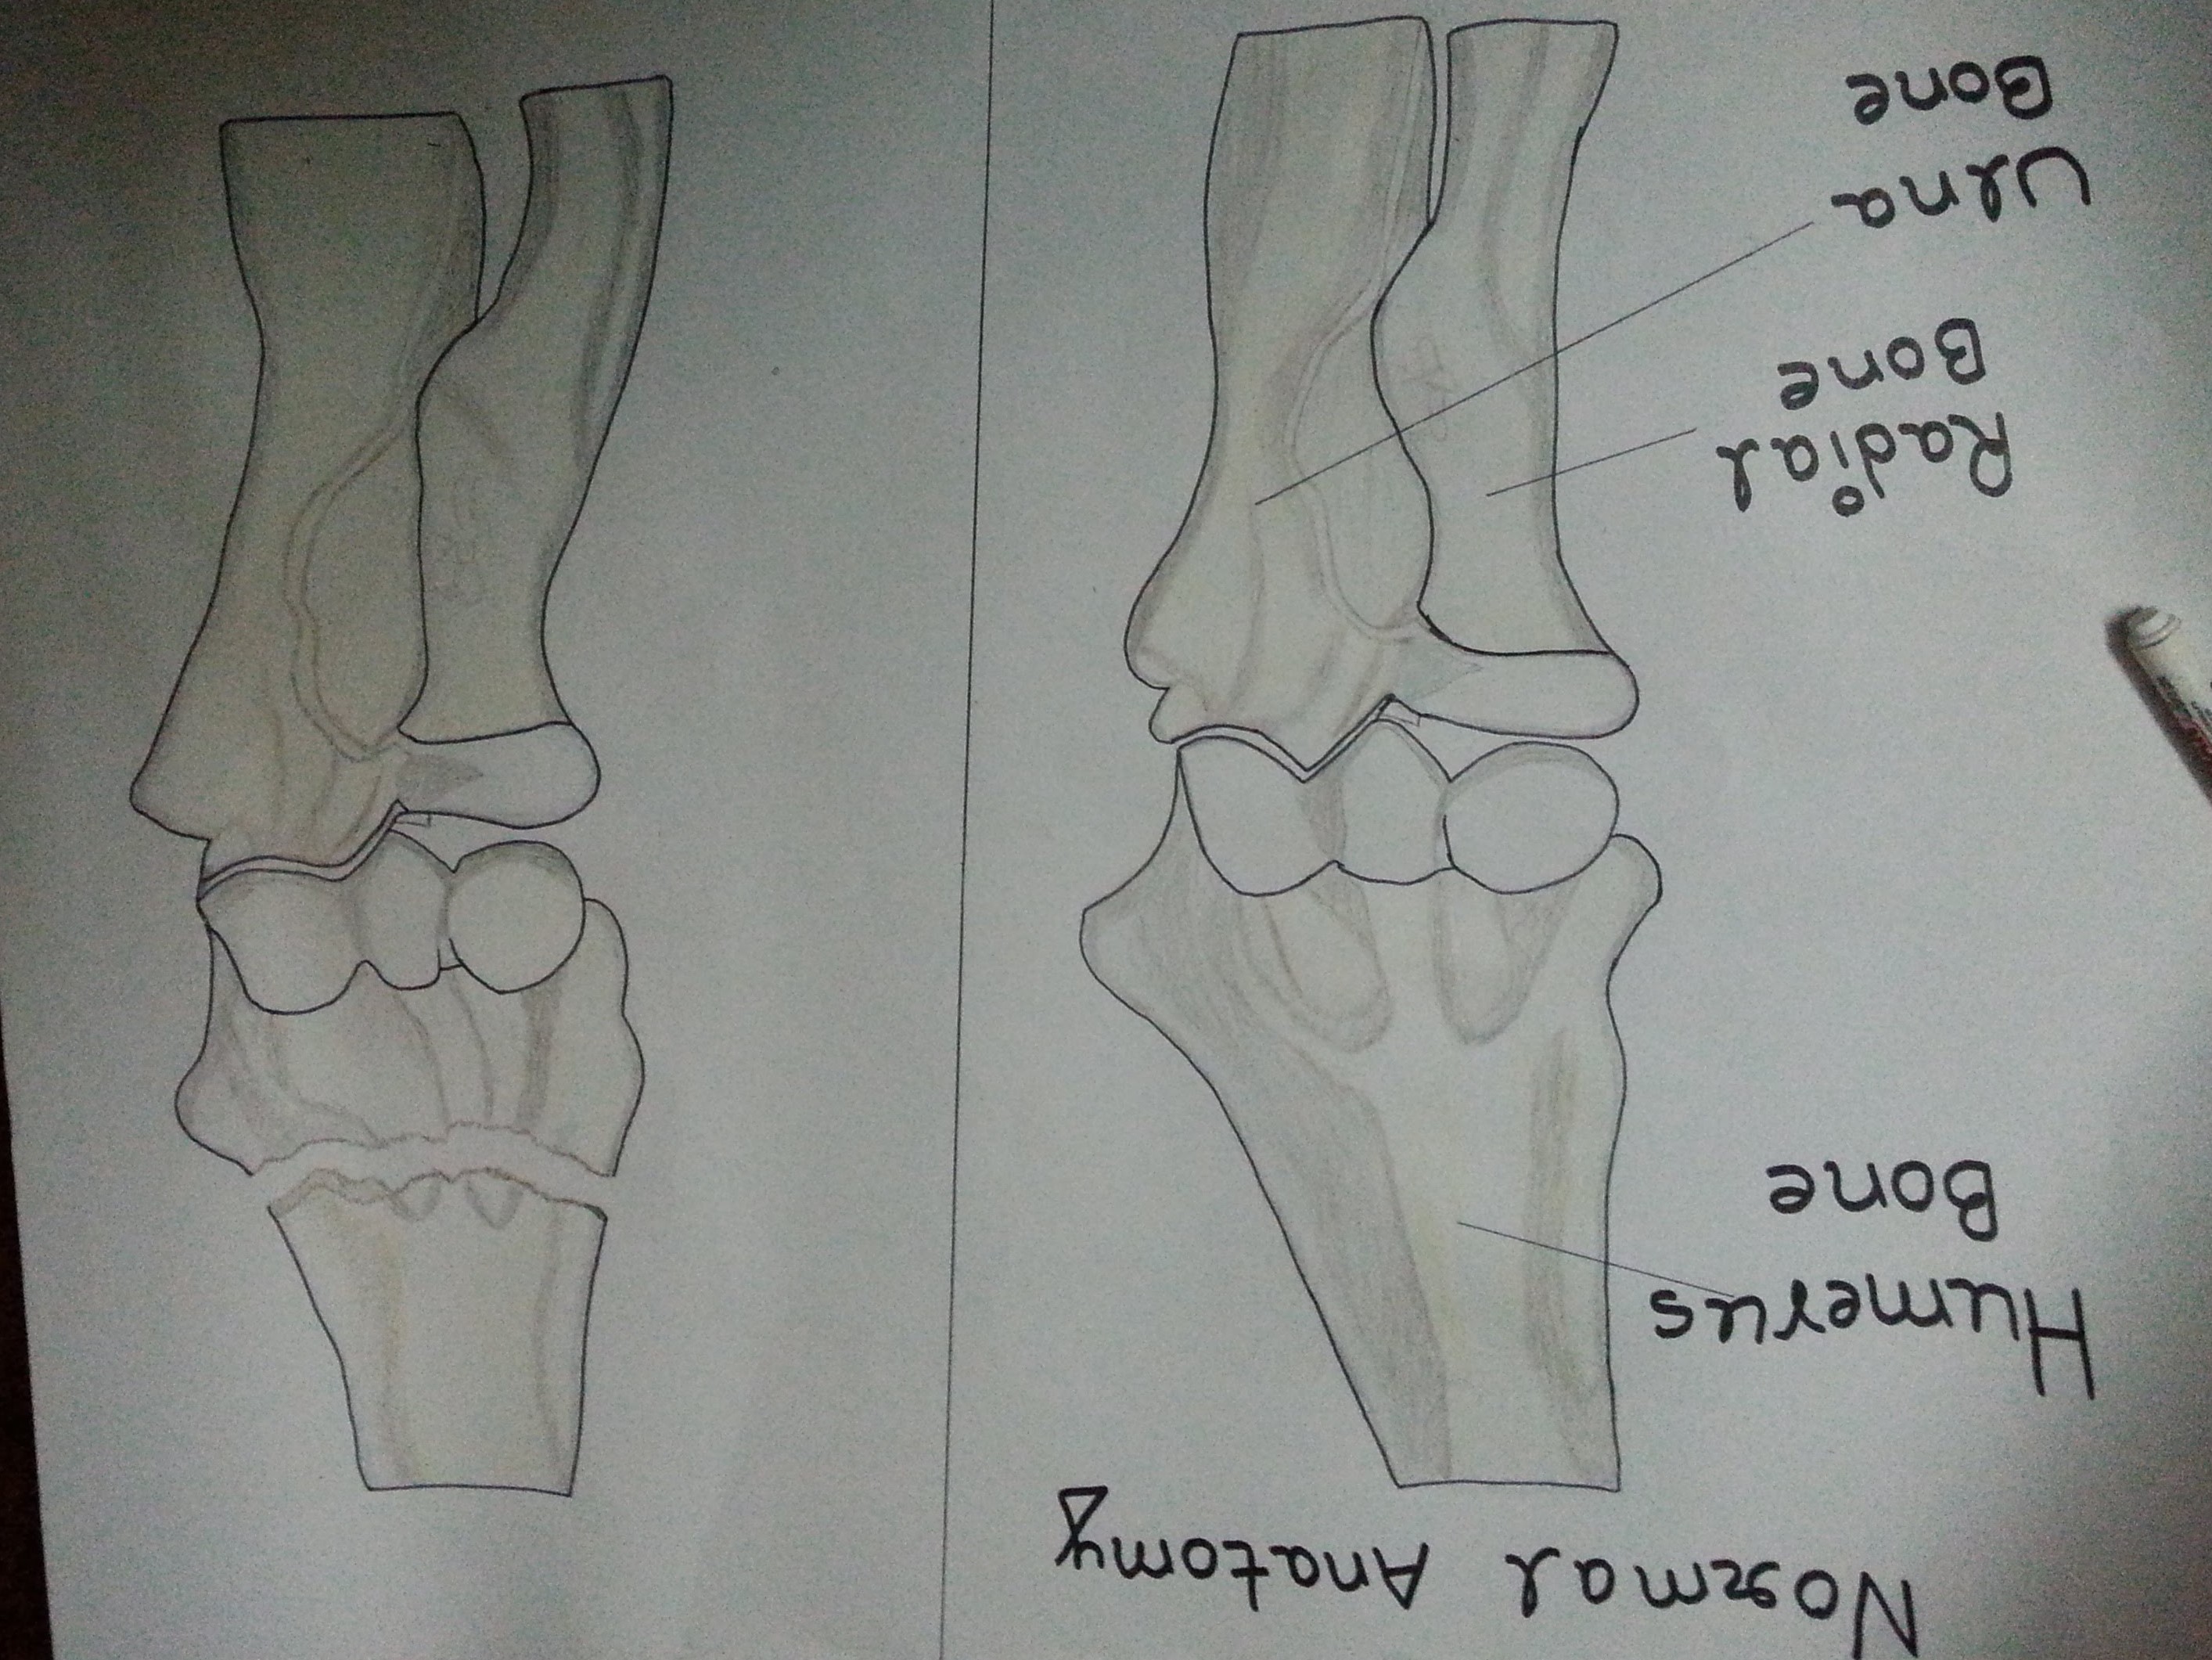 Normal Anatomy
Humerus
Bone
Radial
Bone
Ulna
Bone